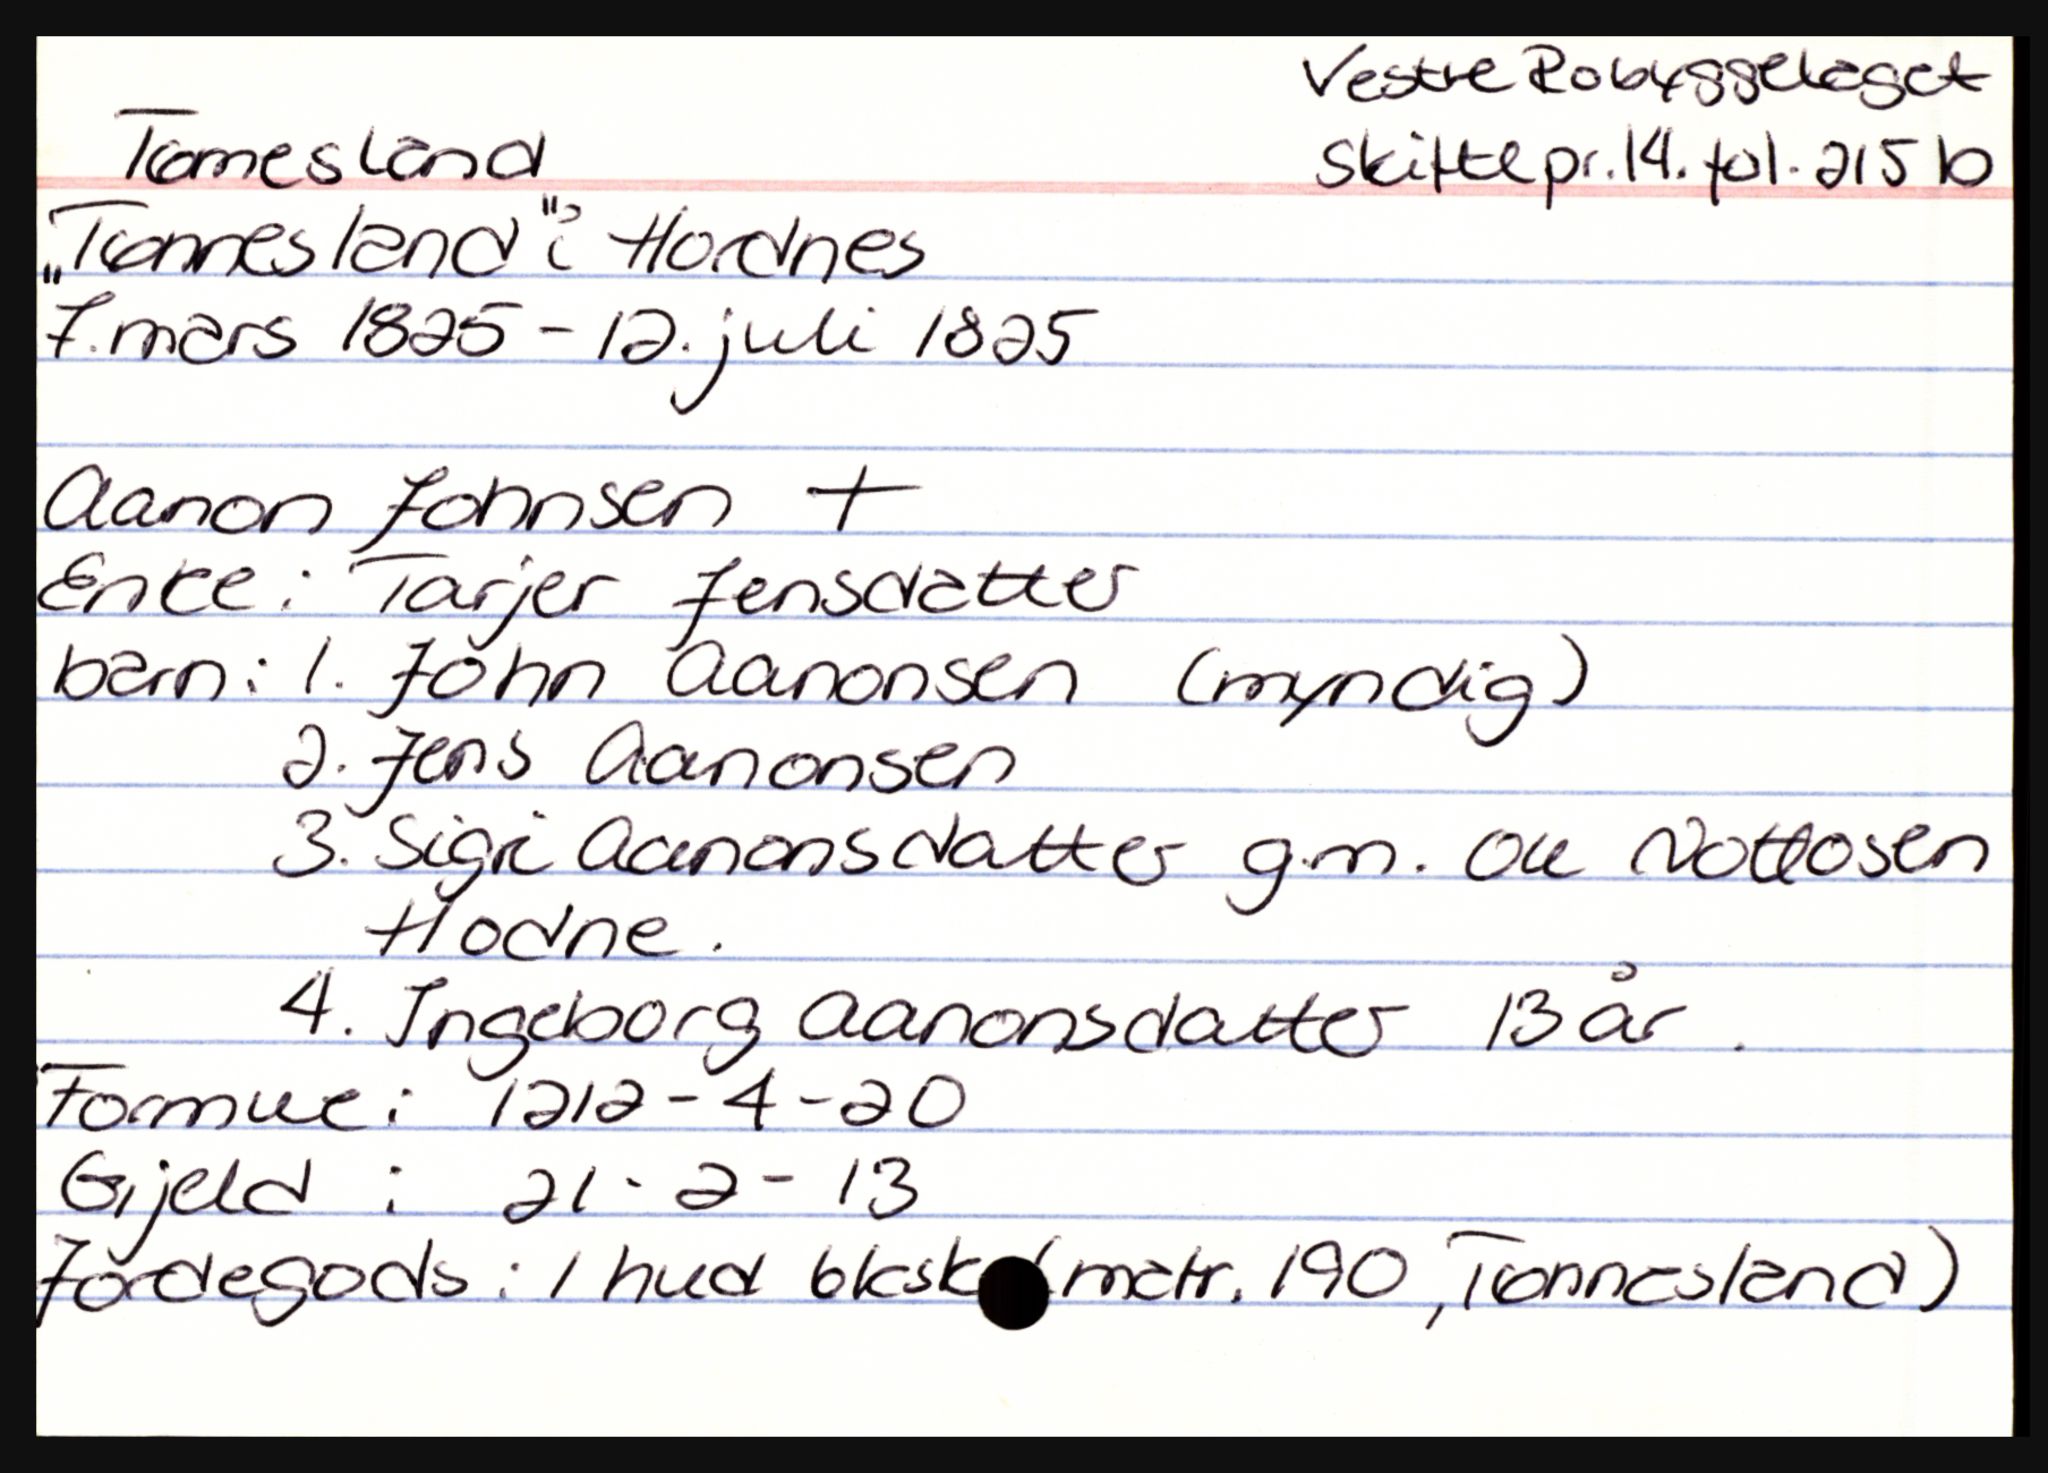 Vestre Robyggelaget
Tømesland Skiftepr. 14. fol. 215 b
„Tønnesland" i Hordnes
7. mars 1825 - 12. juli 1825
Aanon Johnsen +
Enke: Tarjer Jensdatter
barn: 1. John Aanonsen (myndig)
2. Jens Aanonsen
3. Sigri Aanonsdatter g.m. Ole Nottosen
Hodne.
4. Ingeborg Aanonsdatter 13 år.
Formue: 1212 - 4 - 20
Gjeld : 21 - 2 - 13
Jordegods: 1 hud bksk (matr. 190, Tønnesland)